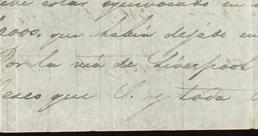 estar equivocado en
2000, que habia dejado en
Por la via de Liverpool
deseo que S. y toda